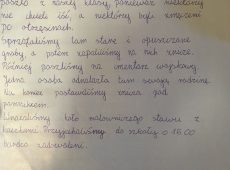 poszło z naszej klasy, ponieważ niektórzy
nie chcieli iść, a niektórzy byli zmęczeni
po otrzęsinach.
Sprzątaliśmy tam stare i opuszczone
groby, a potem zapaliliśmy na nich znicze.
Później poszliśmy na cmentarz wojskowy.
Jedna osoba odnalazła tam swoją rodzinę.
Na koniec postawiliśmy znicze pod
pomnikiem.
Wracaliśmy koło malowniczego stawu z
kaczkami. Przyjechaliśmy do szkoły o 15.00
bardzo zadowoleni.